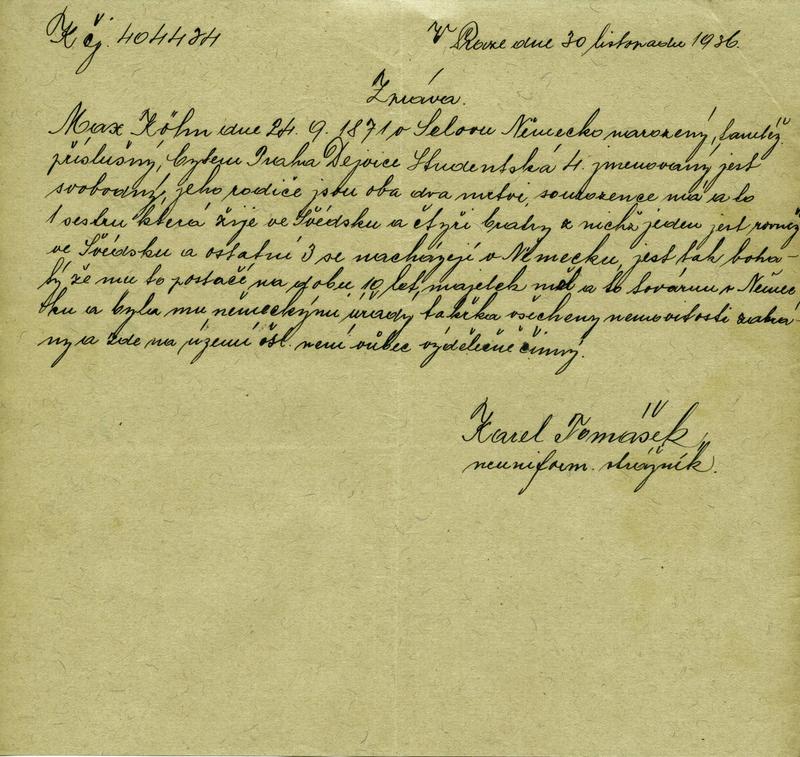 K čj. 404434
V Praze dne 30 listopadu 1936.
Zpráva.
Max Köhn dne 24. 9. 1871 v Německo narozený, tamtéž
příslušný, bytem Praha Dejvice Studentská 4. jmenovaný jest
svobodný, jeho rodiče jsou oba dva mrtvi, sourozence má a to
1 sestru která žije ve Švédsku a čtyři bratry z nichž jeden jest rovněž
ve Švédsku a ostatní 3 se nacházejí v Německu, jest tak boha-
tý že mu to postačí na dobu 10 let, majetek měl a to továrnu v Němec
ku a byla mu německými úřady takřka všecheny nemovitosti zabrá-
ny a zde na území čsl. není vůbec výdělečně činný.
Karel Tomášek IV
neuniform. strážník.